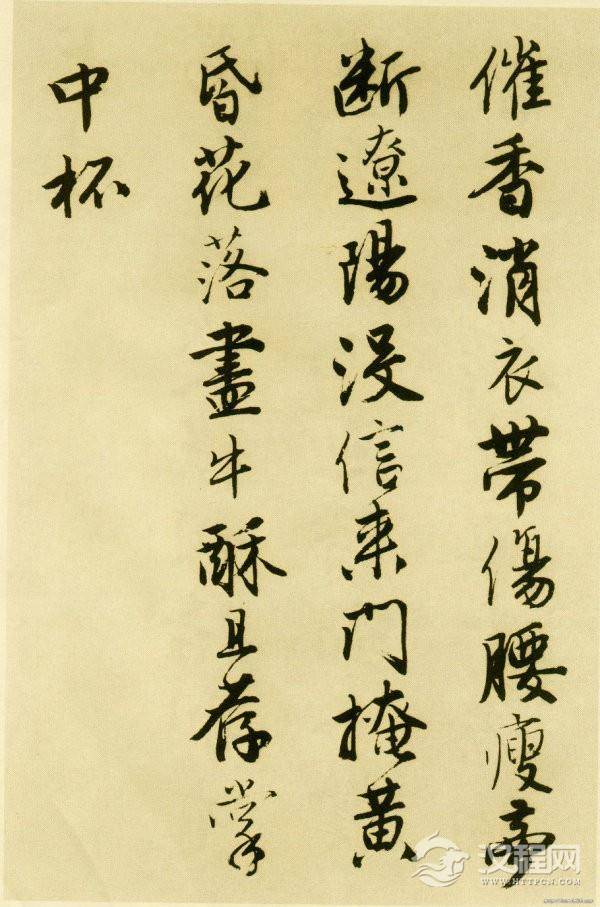 催香消衣帶傷腰瘦夢
断遼陽没信来門掩黄
昏花落盡牛酥且荐掌
中杯
汉程网
WWW.HTTPCN.COM